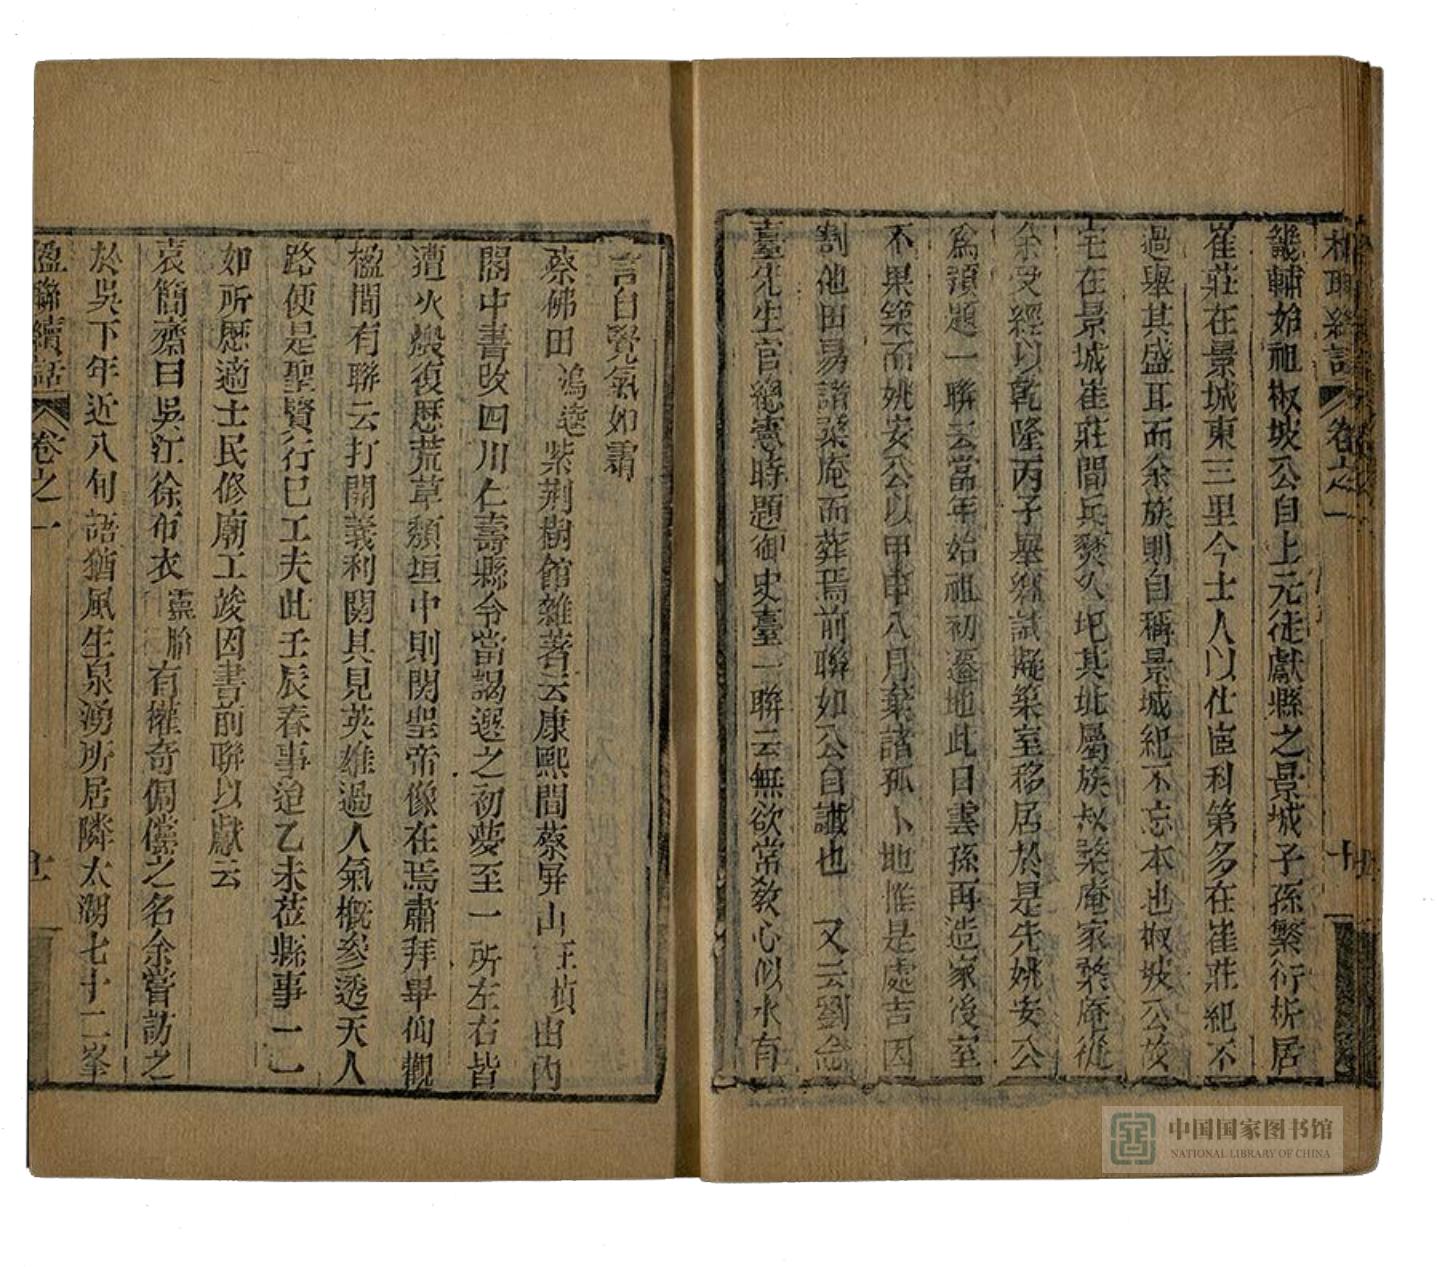 楹聯續話 卷之一 十
畿輔始祖椒坡公自上元徙獻縣之景城子孫繁衍析居
崔莊在景城東三里今士人以仕宦科第多在崔莊紀不
過舉其盛耳而余族則自稱景城紀不忘本也椒坡公故
宅在景城崔莊間兵燹久圯其址屬族叔楘庵家楘庵從
余受經以乾隆丙子舉鄉試擬築室移居於是先姚安公
爲預題一聯云當年始祖初遷地此日雲孫再造家後室
不果築而姚安公以甲申八月棄諸孤卜地惟是處吉因
割他田易諸楘庵而葬焉前聯如公自讖也 又云劉念
臺先生官總憲時題御史臺一聯云無欲常敎心似水有
言自覺氣如霜
蔡佛田鴻逵紫荆樹館雜著云康熙間蔡屏山在楨由內
閣中書改四川仁壽縣令當謁選之初夢至一所左右皆
遭火燬復歴荒草頽垣中則關聖帝像在焉肅拜畢仰觀
楹間有聯云打開義利關具見英雄過人氣槪參透天人
路便是聖賢行已工夫此壬辰春事迨乙未莅縣事一一
如所歴適士民修廟工竣因書前聯以獻云
袁簡齋曰吳江徐布衣靈胎有權奇倜儻之名余嘗訪之
於吳下年近八旬語猶風生泉湧所居隣太湖七十二峯
楹聯續話 卷之一
中国国家图书馆
NATIONAL LIBRARY OF CHINA